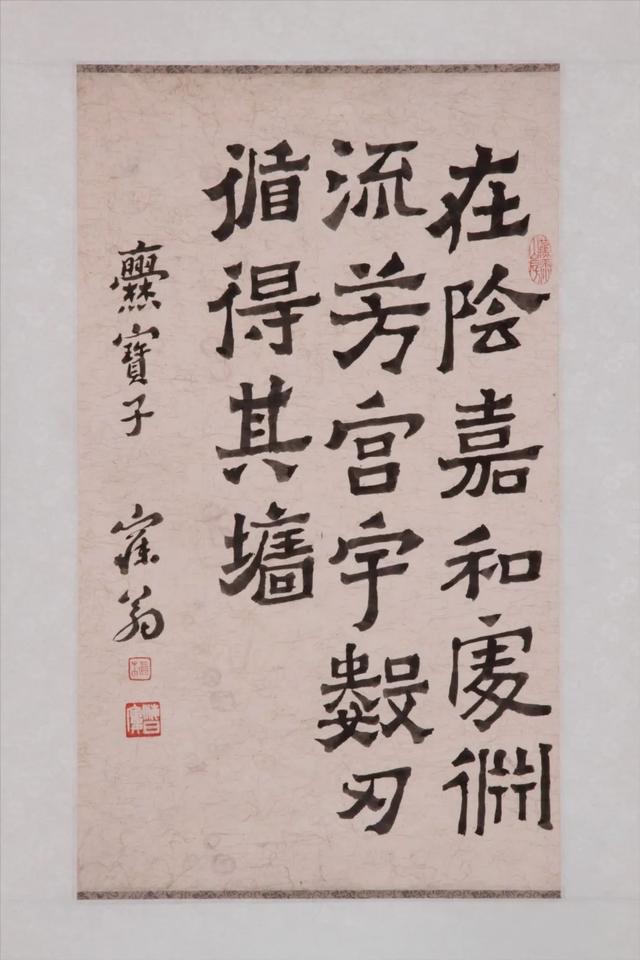 在陰嘉和處淵
流芳宫宇數刃
循得其墻
爨寶子
寐翁